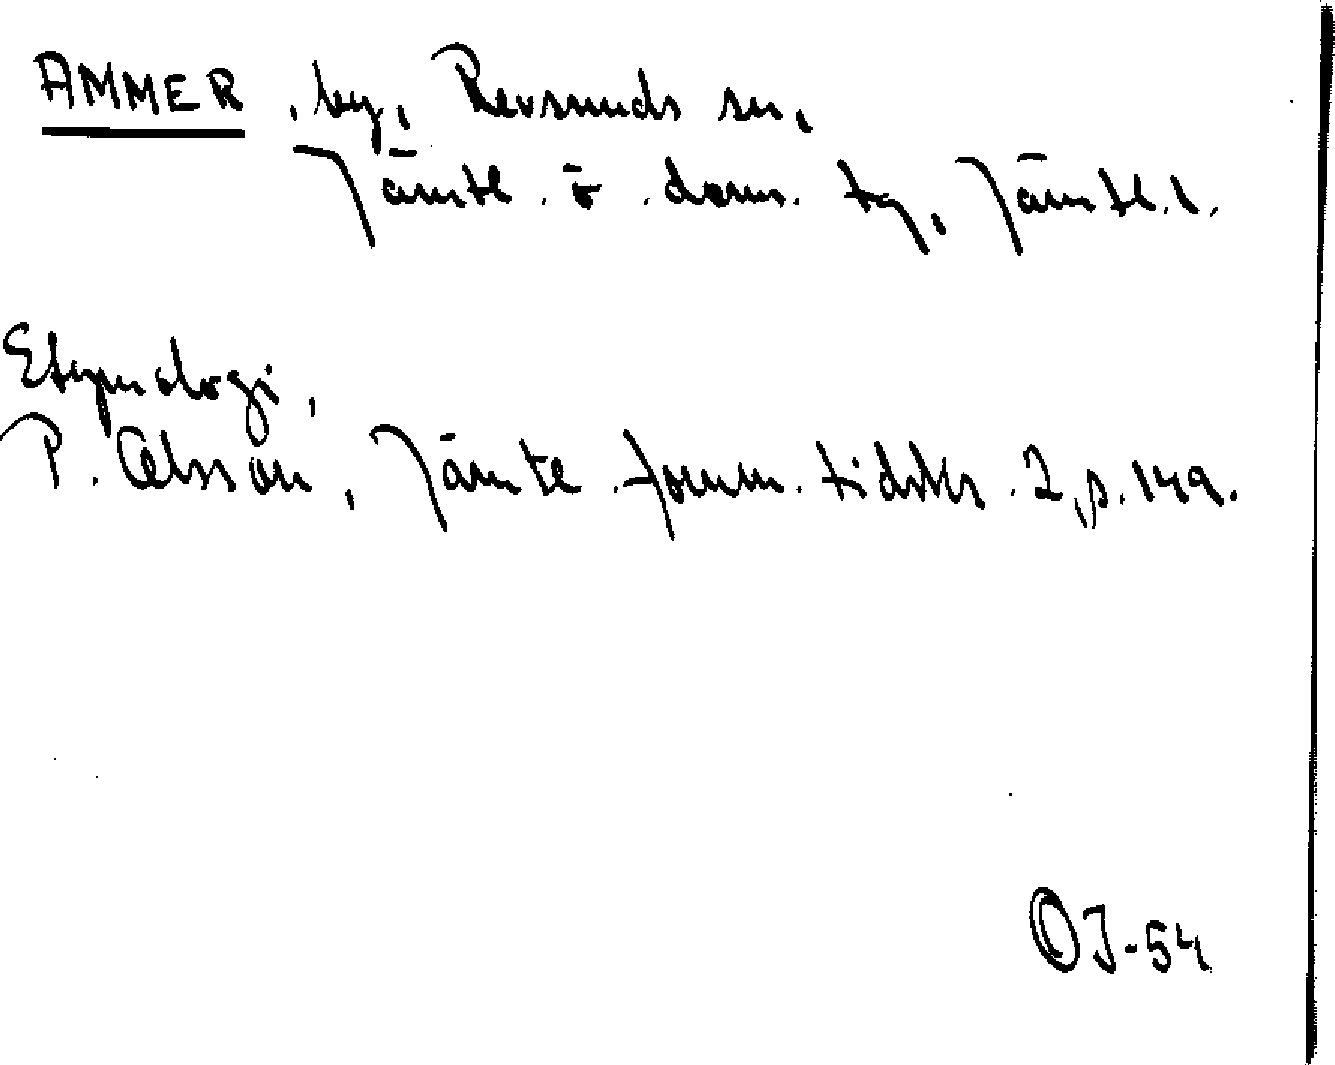 AMMER, by, Revsunds sn,
Jämtl. ö. dom. tg, Jämtl. l.
Etymologi.
P. Olsson, Jämtl. fornm. tidskr. 2, p. 149.
OJ-54